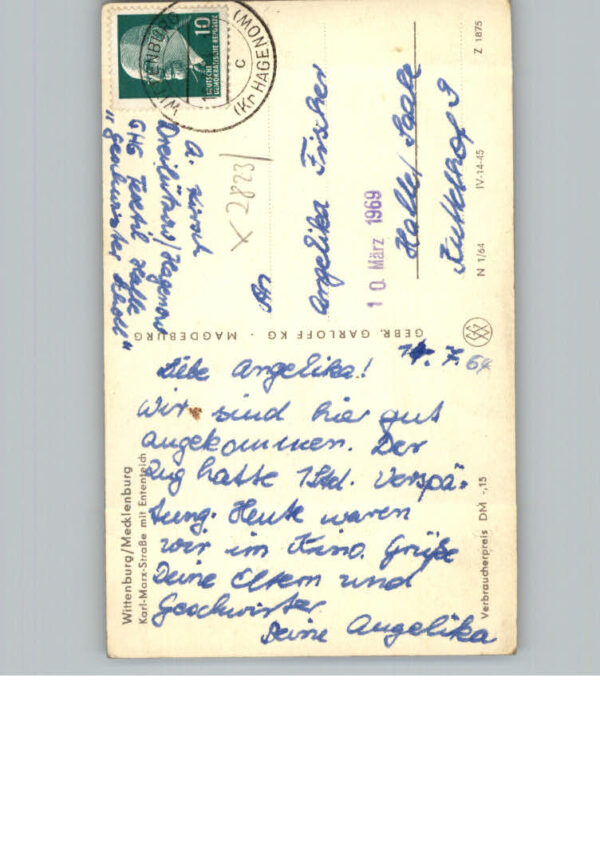 Wittenburg/Mecklenburg
Karl-Marx-Straße mit Ententeich
14. 7. 64
Liebe Angelika!
Wir sind hier gut
angekommen. Der
Zug hatte 1 Std. Verspä-
tung. Heute waren
wir im Kino. Grüße
Deine Eltern und
Geschwister.
Deine Angelika
Verbraucherpreis DM -,15
GEBR. GARLOFF KG · MAGDEBURG
A.
Dreilützow/Hagenow
GHG Textil Halle
"Geschwister Scholl"
x 2823/
An
Angelika Fischer
10. März 1969
Halle/Saale
N 1/64 IV-14-45 Z 1875
10
DEUTSCHE
DEMOKRATISCHE REPUBLIK
WITTENBURG (MECKL)
c
(Kr HAGENOW)